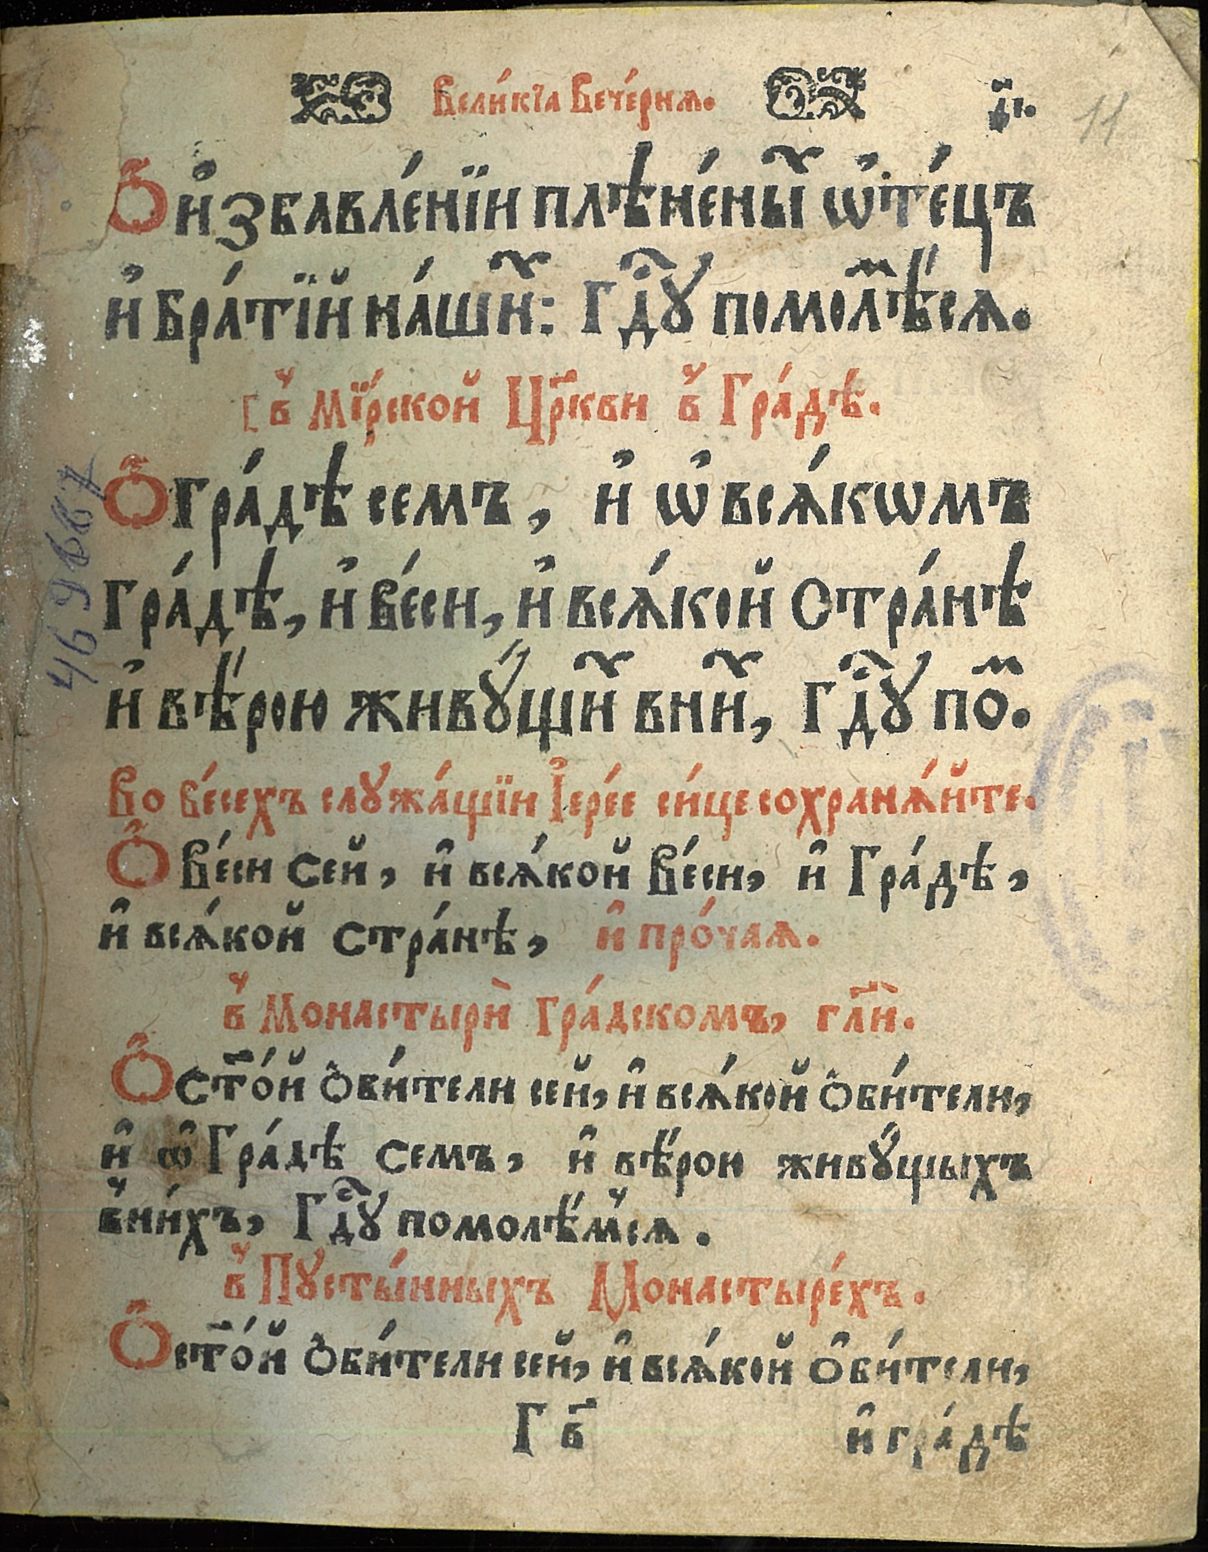 Вели́кїѧ Вече́рнѧ. 11
Ѽ и҆збавле́нїи плѣне́ны̑ ѡ҆те́цъ
и҆ бра́тїй на́ши̑: Гд҇ꙋ помо́лⷨѣсѧ.
[в̾ мїрской Цр҃кви в̾ Гра́дѣ.
Ѽ гра́дѣ семъ, и҆ ѡ҆ всѧ́кѡмъ
гра́дѣ, и҆ ве́си, и҆ всѧ́кой стра́нѣ
и҆ вѣ́рою живꙋ́щи̑ в ни̑, Гд҇ꙋ поⷨ.
Во ве́сехъ слꙋжа́щїи І҆ере́е си́це сохранѧ́йте.
Ѽ Ве́си сей, и҆ всѧ́кой Ве́си, и҆ Гра́дѣ,
и҆ всѧ́кой стра́нѣ, и҆ про́чаѧ.
в̾ Монастыри̑ Гра́дскомъ, гл҃и̑.
Ѽ ст҃о́й Ѻ҆би́тели сей, и҆ всѧ́кой Ѻ҆би́тели,
и҆ ѡ҆ Гра́дѣ семъ, и҆ вѣ́рою живꙋ́щыхъ
в̾ни́хъ, Гд҇ꙋ помолѣ́м̾сѧ.
в̾ Пꙋсты́нныхъ Монастыре́хъ.
Ѽ ст҃о́й Ѻ҆би́тели сей, и҆ всѧ́кой Ѻ҆би́тели,
Г в҃ и҆ гра́дѣ